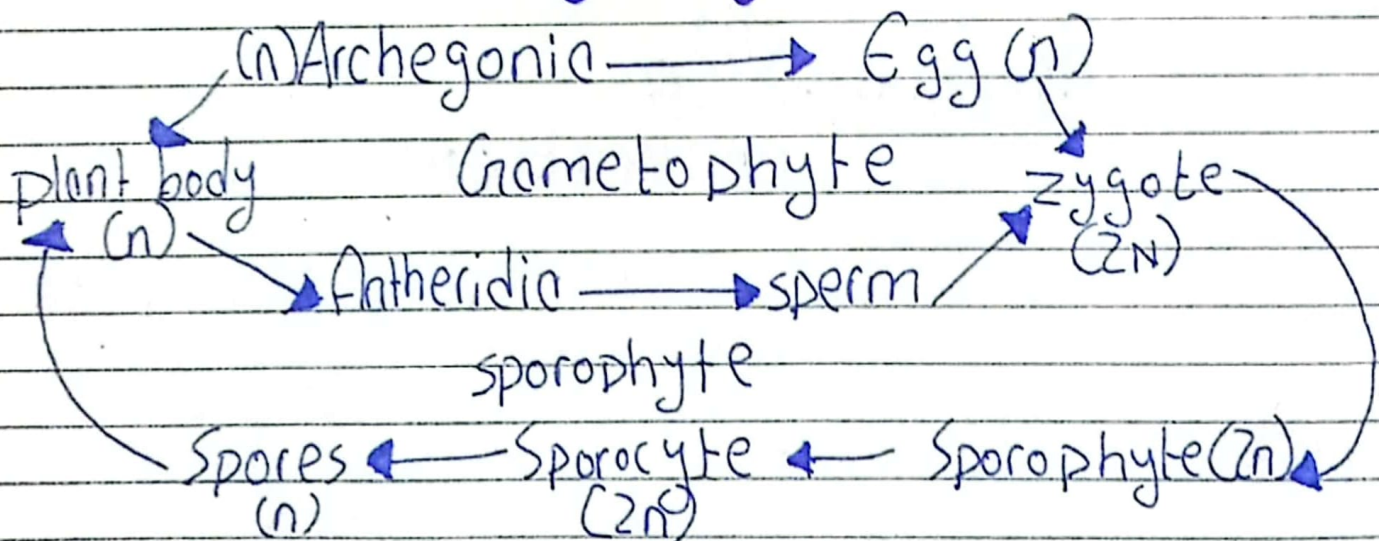 (n) Archegonia Egg (n)
plant body Gametophyte zygote
(n) (2N)
Antheridia sperm
sporophyte
Spores Sporocyte Sporophyte (2n)
(n) (2n)